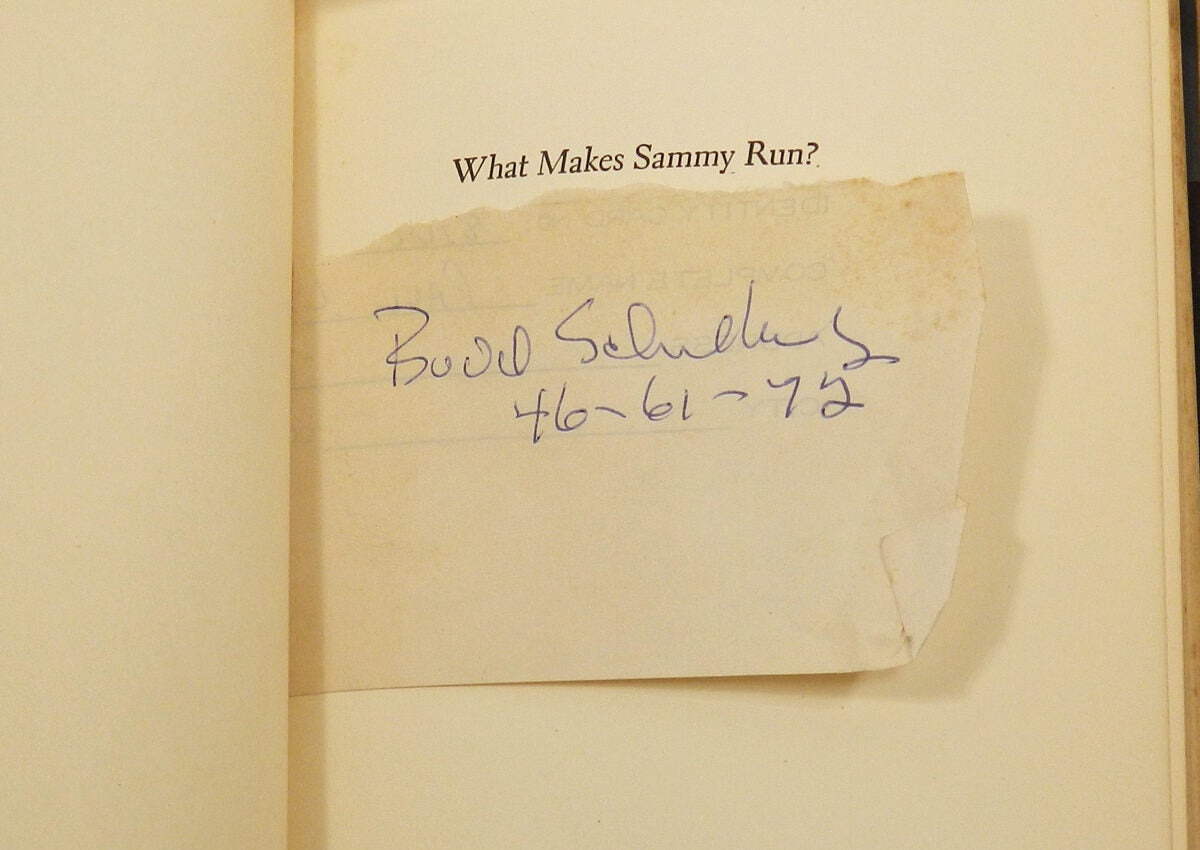 What Makes Sammy Run?
IDENTITY CARD NO.
COMPLETE NAME
Budd Schulberg
46-61-72